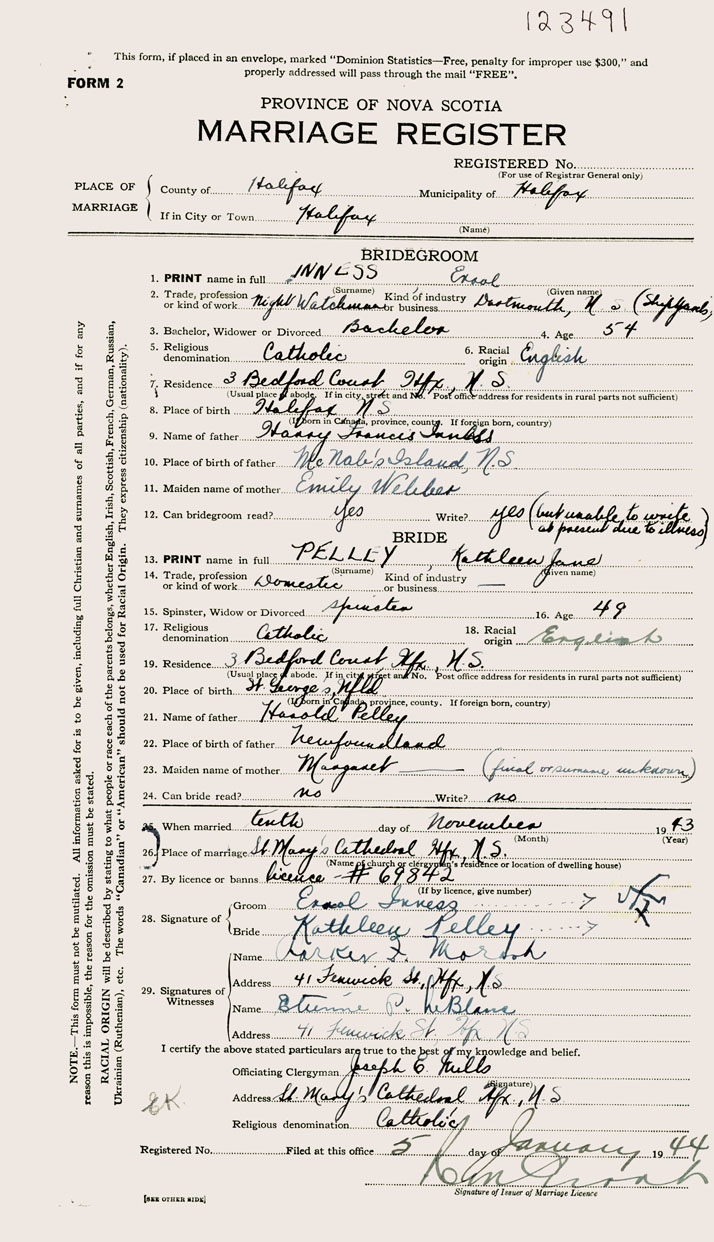 123491
This form, if placed in an envelope, marked "Dominion Statistics—Free, penalty for improper use $300," and
properly addressed will pass through the mail "FREE".
FORM 2
PROVINCE OF NOVA SCOTIA
MARRIAGE REGISTER
REGISTERED No.
(For use of Registrar General only)
PLACE OF MARRIAGE
County of Halifax Municipality of Halifax
If in City or Town Halifax
(Name)
BRIDEGROOM
1. PRINT name in full INNESS Errol
(Surname) (Given name)
2. Trade, profession or kind of work Night Watchman Kind of industry or business Dartmouth, N S (Shipyards)
3. Bachelor, Widower or Divorced Bachelor 4. Age 54
5. Religious denomination Catholic 6. Racial origin English
7. Residence 3 Bedford Court, Hfx, N.S.
(Usual place of abode. If in city, street and No. Post office address for residents in rural parts not sufficient)
8. Place of birth Halifax N S
(If born in Canada, province, county. If foreign born, country)
9. Name of father Harry Francis Inness
10. Place of birth of father McNab's Island, N.S
11. Maiden name of mother Emily Webber
12. Can bridegroom read? yes Write? yes (but unable to write
at present due to illness)
BRIDE
13. PRINT name in full PELLEY, Kathleen Jane
(Surname) (Given name)
14. Trade, profession or kind of work Domestic Kind of industry or business —
15. Spinster, Widow or Divorced spinster 16. Age 49
17. Religious denomination Catholic 18. Racial origin English
19. Residence 3 Bedford Court, Hfx, N.S.
(Usual place of abode. If in city, street and No. Post office address for residents in rural parts not sufficient)
20. Place of birth St. George's, Nfld
(If born in Canada, province, county. If foreign born, country)
21. Name of father Harold Pelley
22. Place of birth of father Newfoundland
23. Maiden name of mother Margaret — (final or surname unknown)
24. Can bride read? no Write? no
25. When married tenth day of November 1943
(Month) (Year)
26. Place of marriage St. Mary's Cathedral Hfx, N.S.
(Name of church or clergyman's residence or location of dwelling house)
27. By licence or banns licence - # 69842
(If by licence, give number)
28. Signature of
Groom Errol Inness
Bride Kathleen Pelley
29. Signatures of Witnesses
Name
Address 41 Fenwick St., Hfx, N.S
Name Etienne P. LeBlanc
Address 41 Fenwick St. Hfx N S
I certify the above stated particulars are true to the best of my knowledge and belief.
Officiating Clergyman Joseph E. Mills
(Signature)
Address St. Mary's Cathedral Hfx, N S
Religious denomination Catholic
Registered No. Filed at this office 5 day of January 1944
Signature of Issuer of Marriage Licence
[SEE OTHER SIDE]
NOTE.—This form must not be mutilated. All information asked for is to be given, including full Christian and surnames of all parties, and if for any
reason this is impossible, the reason for the omission must be stated.
RACIAL ORIGIN will be described by stating to what people or race each of the parents belongs, whether English, Irish, Scottish, French, German, Russian,
Ukrainian (Ruthenian), etc. The words "Canadian" or "American" should not be used for Racial Origin. They express citizenship (nationality).